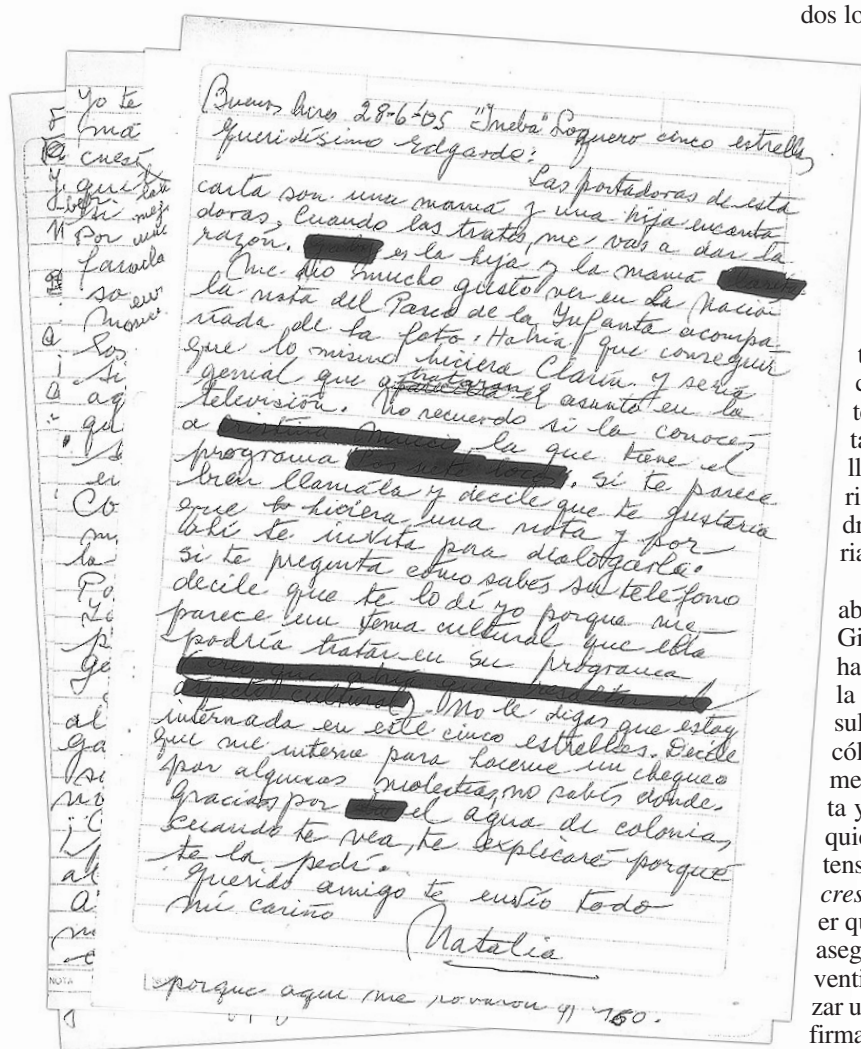 dos lo
Buenos Aires 28-6-05 "Ineba" Loquero cinco estrellas
Queridísimo Edgardo:
Las portadoras de esta
carta son una mamá y una hija encanta
doras, Cuando las trates, me vas a dar la
razón. es la hija y la mamá
Me dio mucho gusto ver en La Nación
la nota del Paseo de la Infanta acompa-
ñada de la foto. Habría que conseguir
que lo mismo hiciera Clarín y sería
genial que trataran el asunto en la
televisión. No recuerdo si la conocés
a la que tiene el
programa . Si te parece
bien llamála y decile que te gustaría
que hiciera una nota y por
ahí te invita para dialogarla.
Si te pregunta cómo sabés su teléfono
decile que te lo dí yo porque me
parece un tema cultural que ella
podría tratar en su programa
aspecto cultural). No le digas que estoy
internada en este cinco estrellas. Decile
que me interné para hacerme un chequeo
por algunas molestias, no sabés dónde.
Gracias por el agua de colonia,
cuando te vea, te explicaré porqué
te la pedí.
Querido amigo te envío todo
mi cariño
Natalia
porque aquí me robaron $ 150.
Yo te
má
cuest
qui
si
Por
farola
so
Los
Si
aq
qu
en
Co
la
Po
Yo
p
ge
al
ga
no
al
a
NOTA
t
c
te
ta
ll
ri
dr
ria
ab
Gi
ha
la
sul
cól
me
ta y
quie
tens
cres
er qu
aseg
venti
zar u
firma